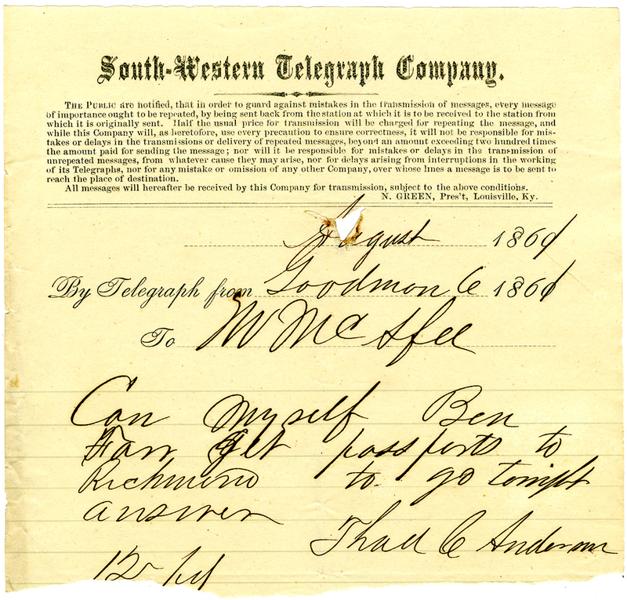 South-Western Telegraph Company.
THE PUBLIC are notified, that in order to guard against mistakes in the transmission of messages, every message
of importance ought to be repeated, by being sent back from the station at which it is to be received to the station from
which it is originally sent. Half the usual price for transmission will be charged for repeating the message, and
while this Company will, as heretofore, use every precaution to ensure correctness, it will not be responsible for mis-
takes or delays in the transmissions or delivery of repeated messages, beyond an amount exceeding two hundred times
the amount paid for sending the message; nor will it be responsible for mistakes or delays in the transmission of
unrepeated messages, from whatever cause they may arise, nor for delays arising from interruptions in the working
of its Telegraphs, nor for any mistake or omission of any other Company, over whose lines a message is to be sent to
reach the place of destination.
All messages will hereafter be received by this Company for transmission, subject to the above conditions.
N. GREEN, Pres't, Louisville, Ky.
August 1861
By Telegraph from Goodman 6 1861
To M McAfee
Can myself Ben
Farr get passports to
Richmond to go tonight
answer
Thad C Anderson
12 pd